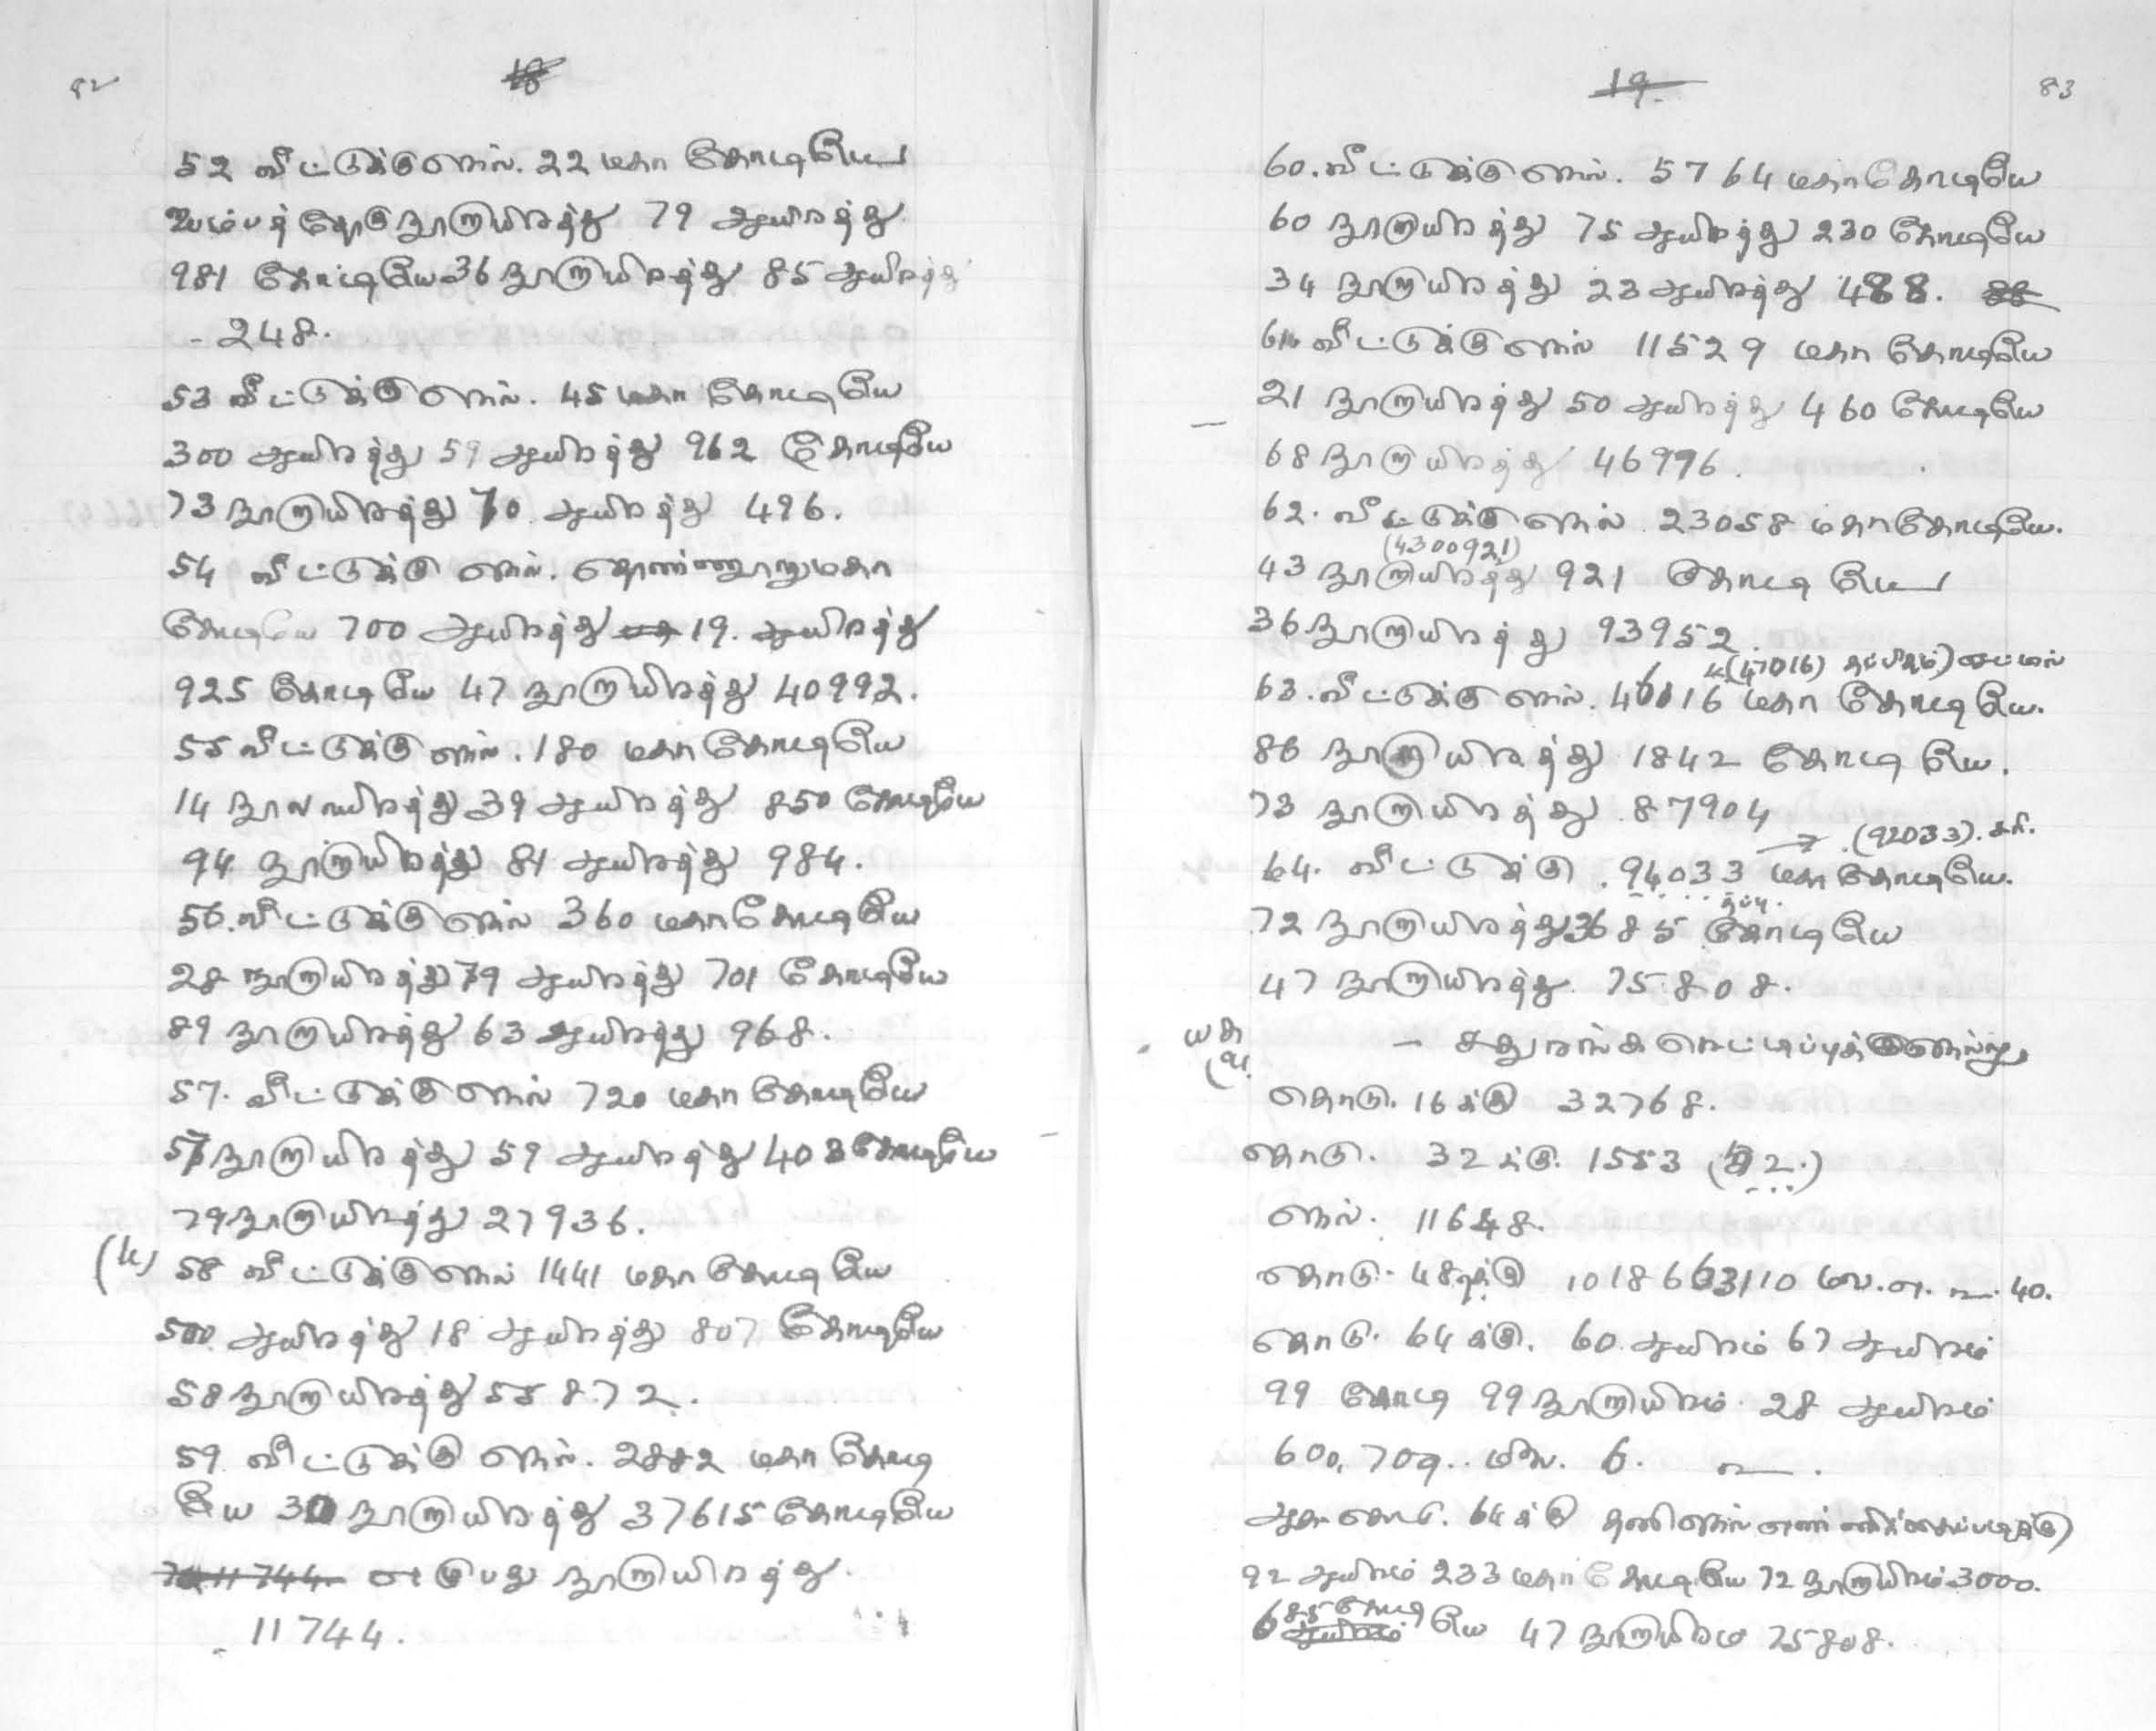 82
18
52 வீட்டுக்கு நெல். 22 மகா கோடியே
நூறாயிரத்து 79 ஆயிரத்து
981 கோடியே 36 நூறாயிரத்து 85 ஆயிரத்து
248.
53 வீட்டுக்கு நெல். 45 மகா கோடியே
300 ஆயிரத்து 59 ஆயிரத்து 962 கோடியே
73 நூறாயிரத்து 70 ஆயிரத்து 496.
54 வீட்டுக்கு நெல். தொண்ணூறு மகா
கோடியே 700 ஆயிரத்து 19. ஆயிரத்து
925 கோடியே 47 நூறாயிரத்து 40992.
55 வீட்டுக்கு நெல். 180 மகா கோடியே
14 நூறாயிரத்து 39 ஆயிரத்து 850 கோடியே
94 நூறாயிரத்து 81 ஆயிரத்து 984.
56. வீட்டுக்கு நெல் 360 மகா கோடியே
28 நூறாயிரத்து 79 ஆயிரத்து 701 கோடியே
89 நூறாயிரத்து 63 ஆயிரத்து 968.
57. வீட்டுக்கு நெல் 720 மகா கோடியே
57 நூறாயிரத்து 59 ஆயிரத்து 403 கோடியே
79 நூறாயிரத்து 27936.
58 வீட்டுக்கு நெல் 1441 மகா கோடியே
500 ஆயிரத்து 18 ஆயிரத்து 807 கோடியே
58 நூறாயிரத்து 55872.
59. வீட்டுக்கு நெல். 2882 மகா கோடி
யே 30 நூறாயிரத்து 37615 கோடியே
7011744 எடுபது நூறாயிரத்து
11744.
19.
83
60. வீட்டுக்கு நெல். 5764 மகா கோடியே
60 நூறாயிரத்து 75 ஆயிரத்து 230 கோடியே
34 நூறாயிரத்து 23 ஆயிரத்து 488.
61 வீட்டுக்கு நெல் 11529 மகா கோடியே
21 நூறாயிரத்து 50 ஆயிரத்து 460 கோடியே
68 நூறாயிரத்து 46976.
62. வீட்டுக்கு நெல் 23058 மகா கோடியே.
(4300921)
43 நூறாயிரத்து 921 கோடியே
36 நூறாயிரத்து 93952.
(47016)
63. வீட்டுக்கு நெல். 46116 மகா கோடியே.
86 நூறாயிரத்து 1842 கோடியே.
73 நூறாயிரத்து 87904
(92033). சரி.
64. வீட்டுக்கு. 94033 மகா கோடியே.
தப்பு.
72 நூறாயிரத்து 3685 கோடியே
47 நூறாயிரத்து 75808.
- சதுரங்க பெட்டிப்புக்கு நெல்லு
தொடு. 16 க்கு 32768.
தொடு. 32 க்கு. 1553
நெல். 11648.
தொடு. 48 க்கு 40.
தொடு. 64 க்கு. 60 ஆயிரம் 67 ஆயிரம்
99 கோடி 99 நூறாயிரம். 28 ஆயிரம்
600, 709.. 6.
ஆக தொடு. 64 க்கு தனி நெல்
92 ஆயிரம் 233 மகா கோடியே 72 நூறாயிரம் 3000.
685 கோடியே 47 நூறாயிரம் 75808.